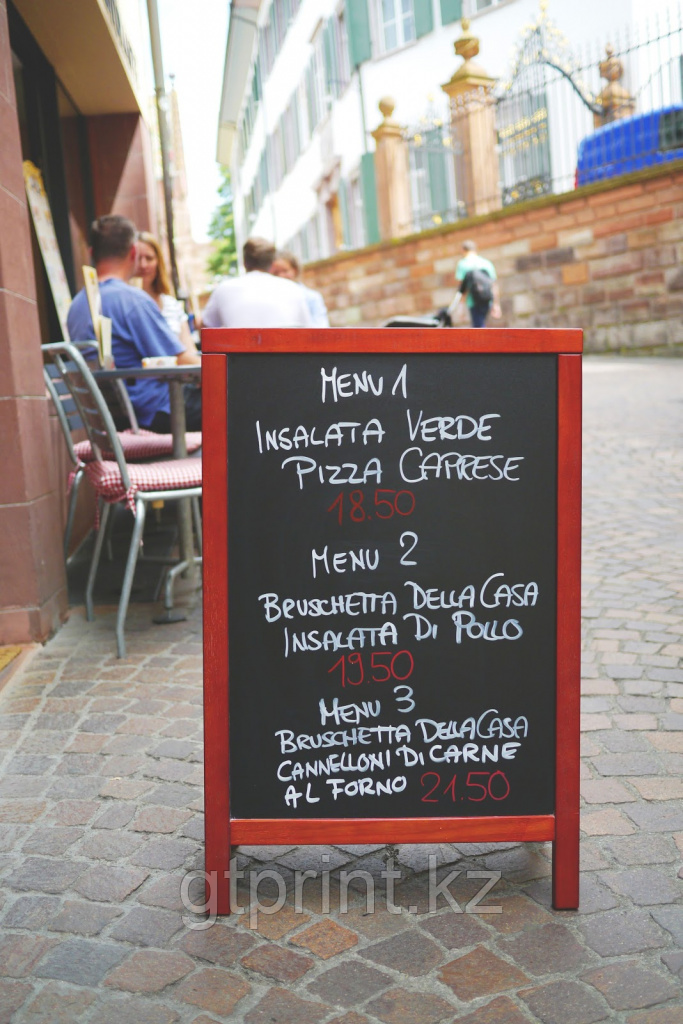 MENU 1
INSALATA VERDE
PIZZA CAPRESE
18.50
MENU 2
BRUSCHETTA DELLA CASA
INSALATA DI POLLO
19.50
MENU 3
BRUSCHETTA DELLA CASA
CANNELLONI DI CARNE
AL FORNO 21.50
gtprint.kz